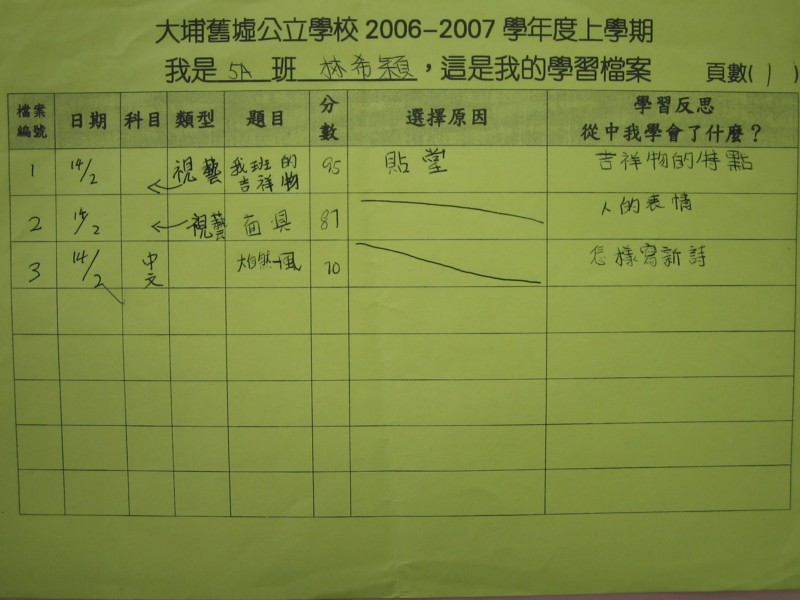 大埔舊墟公立學校 2006-2007 學年度上學期
我是 5A 班 林希穎，這是我的學習檔案 頁數(1)
檔案編號 日期 科目 類型 題目 分數 選擇原因 學習反思 從中我學會了什麼？
1 14/2 視藝 我班的吉祥物 95 貼堂 吉祥物的特點
2 14/2 視藝 面具 87 人的表情
3 14/2 中文 大自然 風 70 怎樣寫新詩